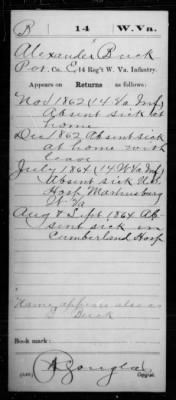 B 14 W. Va.
Alexander Buck
Pvt, Co. C, 14 Reg't W. Va. Infantry.
Appears on Returns as follows:
Nov 1862 (14 Va Inf)
Absent sick at
home
Dec 1862 Absent sick
at home with
leave
July 1864 (14 W Va Inf)
Absent sick U.S.
Hosp Martinsburg
W Va
Aug & Sept 1864 Ab-
sent sick in
Cumberland Hosp
Name appears also as
Book mark:
Copyist.